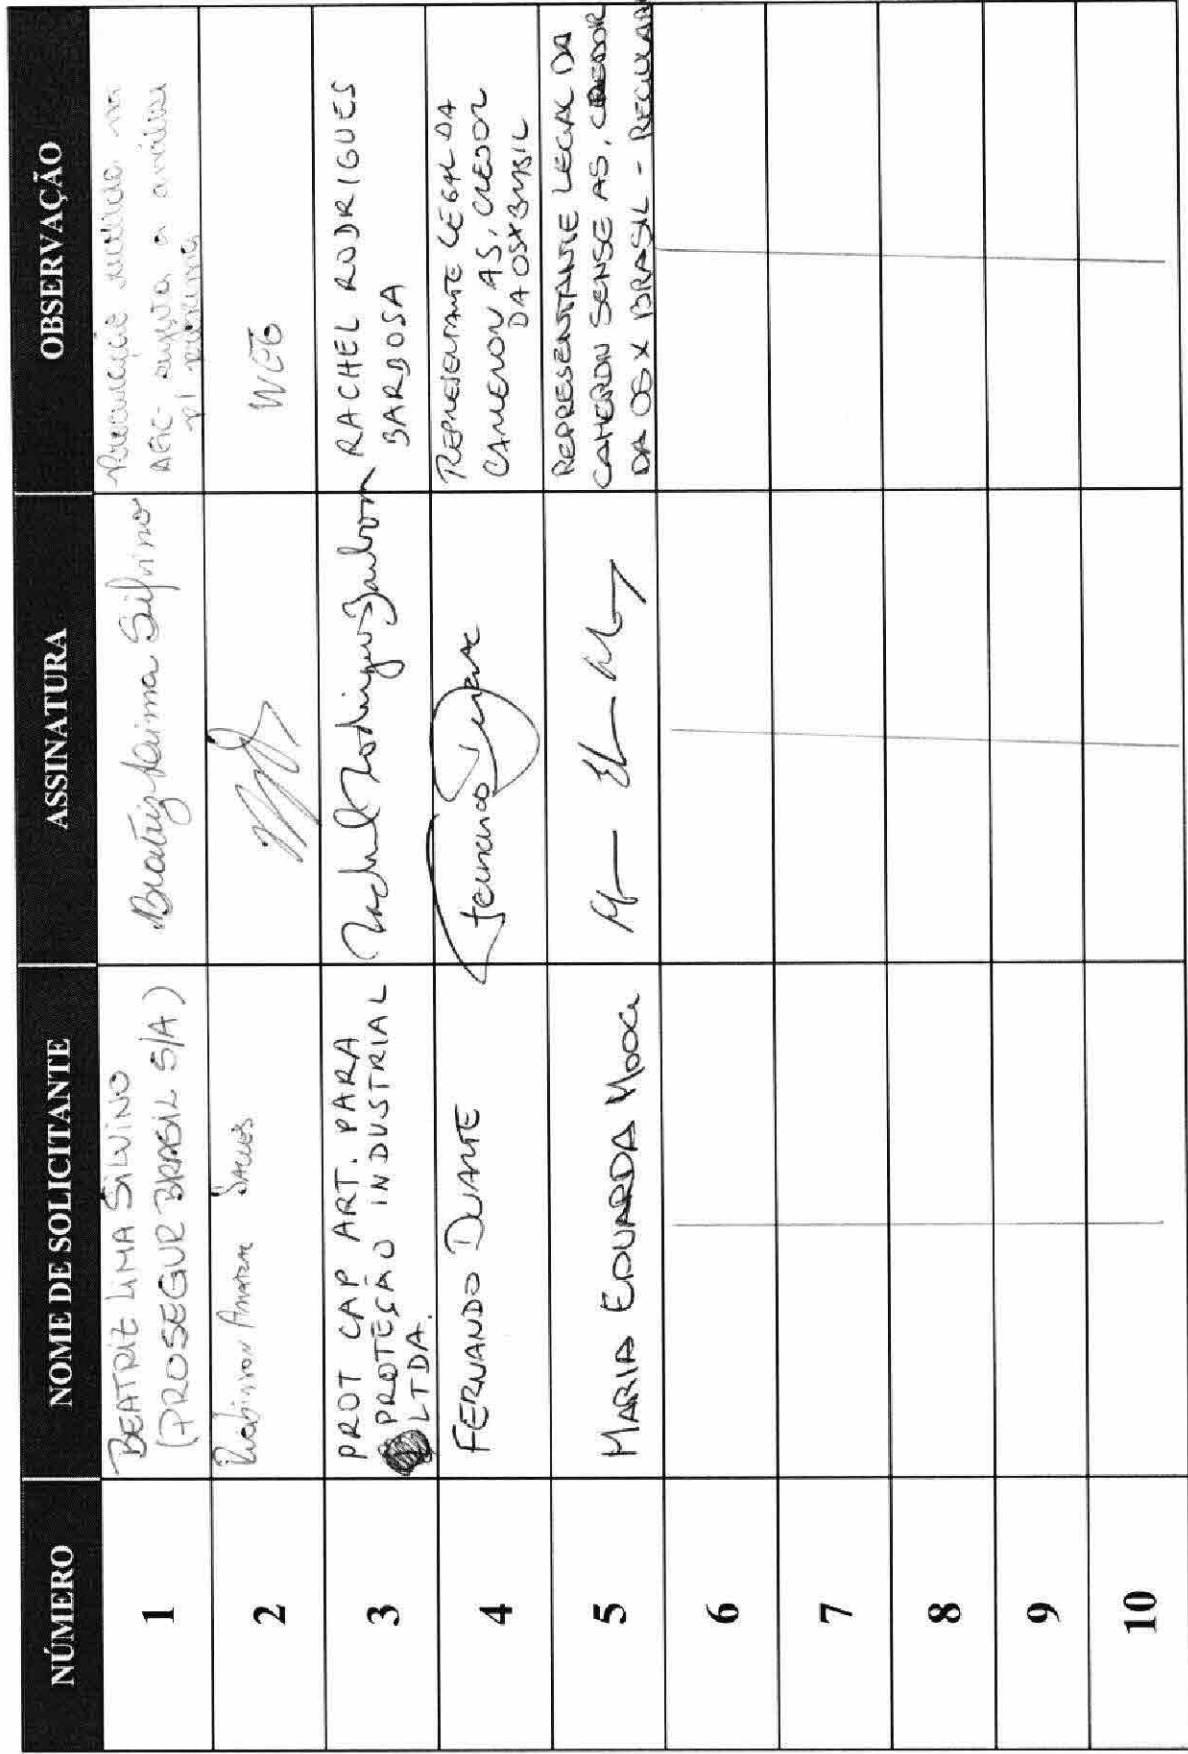 NÚMERO NOME DE SOLICITANTE ASSINATURA OBSERVAÇÃO
1
BEATRIZ LIMA SILVINO
(PROSEGUR BRASIL S/A)
Beatriz Lima Silvino
AGC, sujeita a análise
p/
2
Robinson
WEG
3
PROT CAP ART. PARA
PROTEÇÃO INDUSTRIAL
LTDA.
Rachel Rodrigues Barbosa
RACHEL RODRIGUES
BARBOSA
4
FERNANDO DUARTE
Fernando Duarte
REPRESENTANTE LEGAL DA
CAMERON AS, CREDOR
DA OSX BRASIL
5
MARIA EDUARDA
REPRESENTANTE LEGAL DA
CAMERON SENSE AS, CREDOR
DA OSX BRASIL - REGULAR
6
7
8
9
10